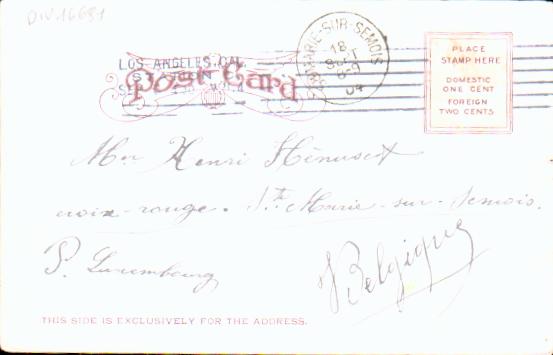 DIV 16691
LOS ANGELES, CAL.
Post Card
STE MARIE-SUR-SEMOIS
18
8-9
04
PLACE
STAMP HERE
DOMESTIC
ONE CENT
FOREIGN
TWO CENTS
Mr Henri Hénusse
croix-rouge. Ste Marie-sur-Semois.
P. Luxembourg
Belgique
THIS SIDE IS EXCLUSIVELY FOR THE ADDRESS.